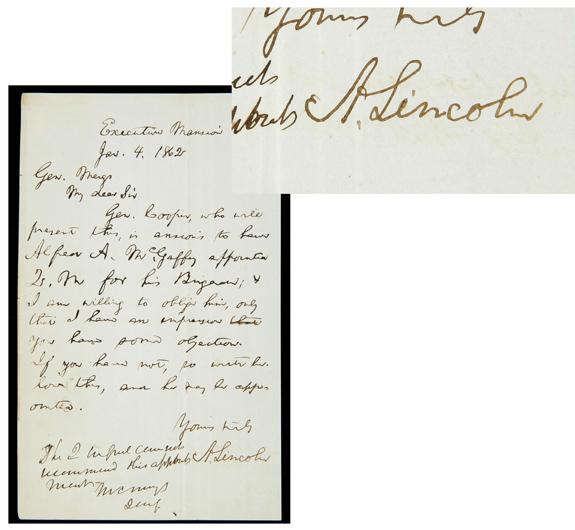 Executive Mansion
Jan. 4. 1862
Gen. Meigs
My dear Sir
Gen. Cooper, who will
present this, is anxious to have
Alfred A. McGaffey appointed
Qr. M for his Brigade; &
I am willing to oblige him, only
that I have an impression that
you have some objection.
If you have not, so write be-
low this, and he may be appo-
inted.
Yours truly
A. Lincoln
The
recommend this appoint
ment
Yours truly
A. Lincoln